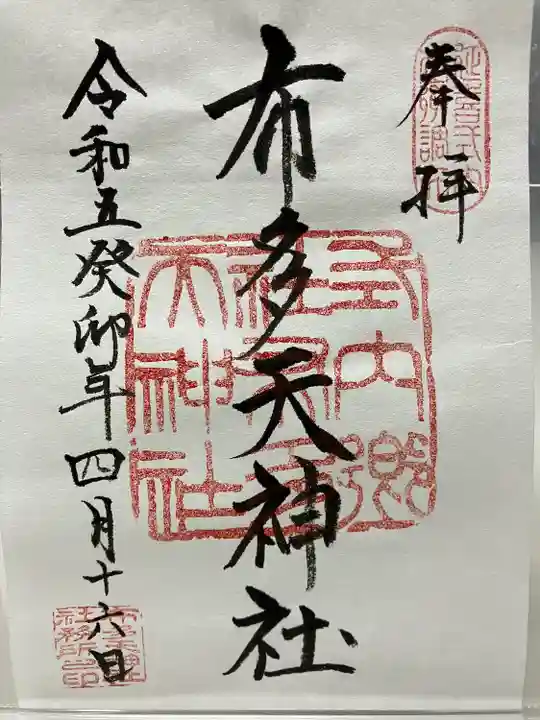 奉拝
布多天神社
令和五癸卯年四月十六日
式内郷社布多天神社